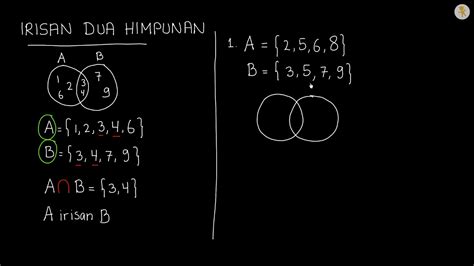 IRISAN DUA HIMPUNAN
A B
1 2 6 3 4 7 9
A = {1, 2, 3, 4, 6}
B = {3, 4, 7, 9}
A ∩ B = {3, 4}
A irisan B
1. A = {2, 5, 6, 8}
B = {3, 5, 7, 9}